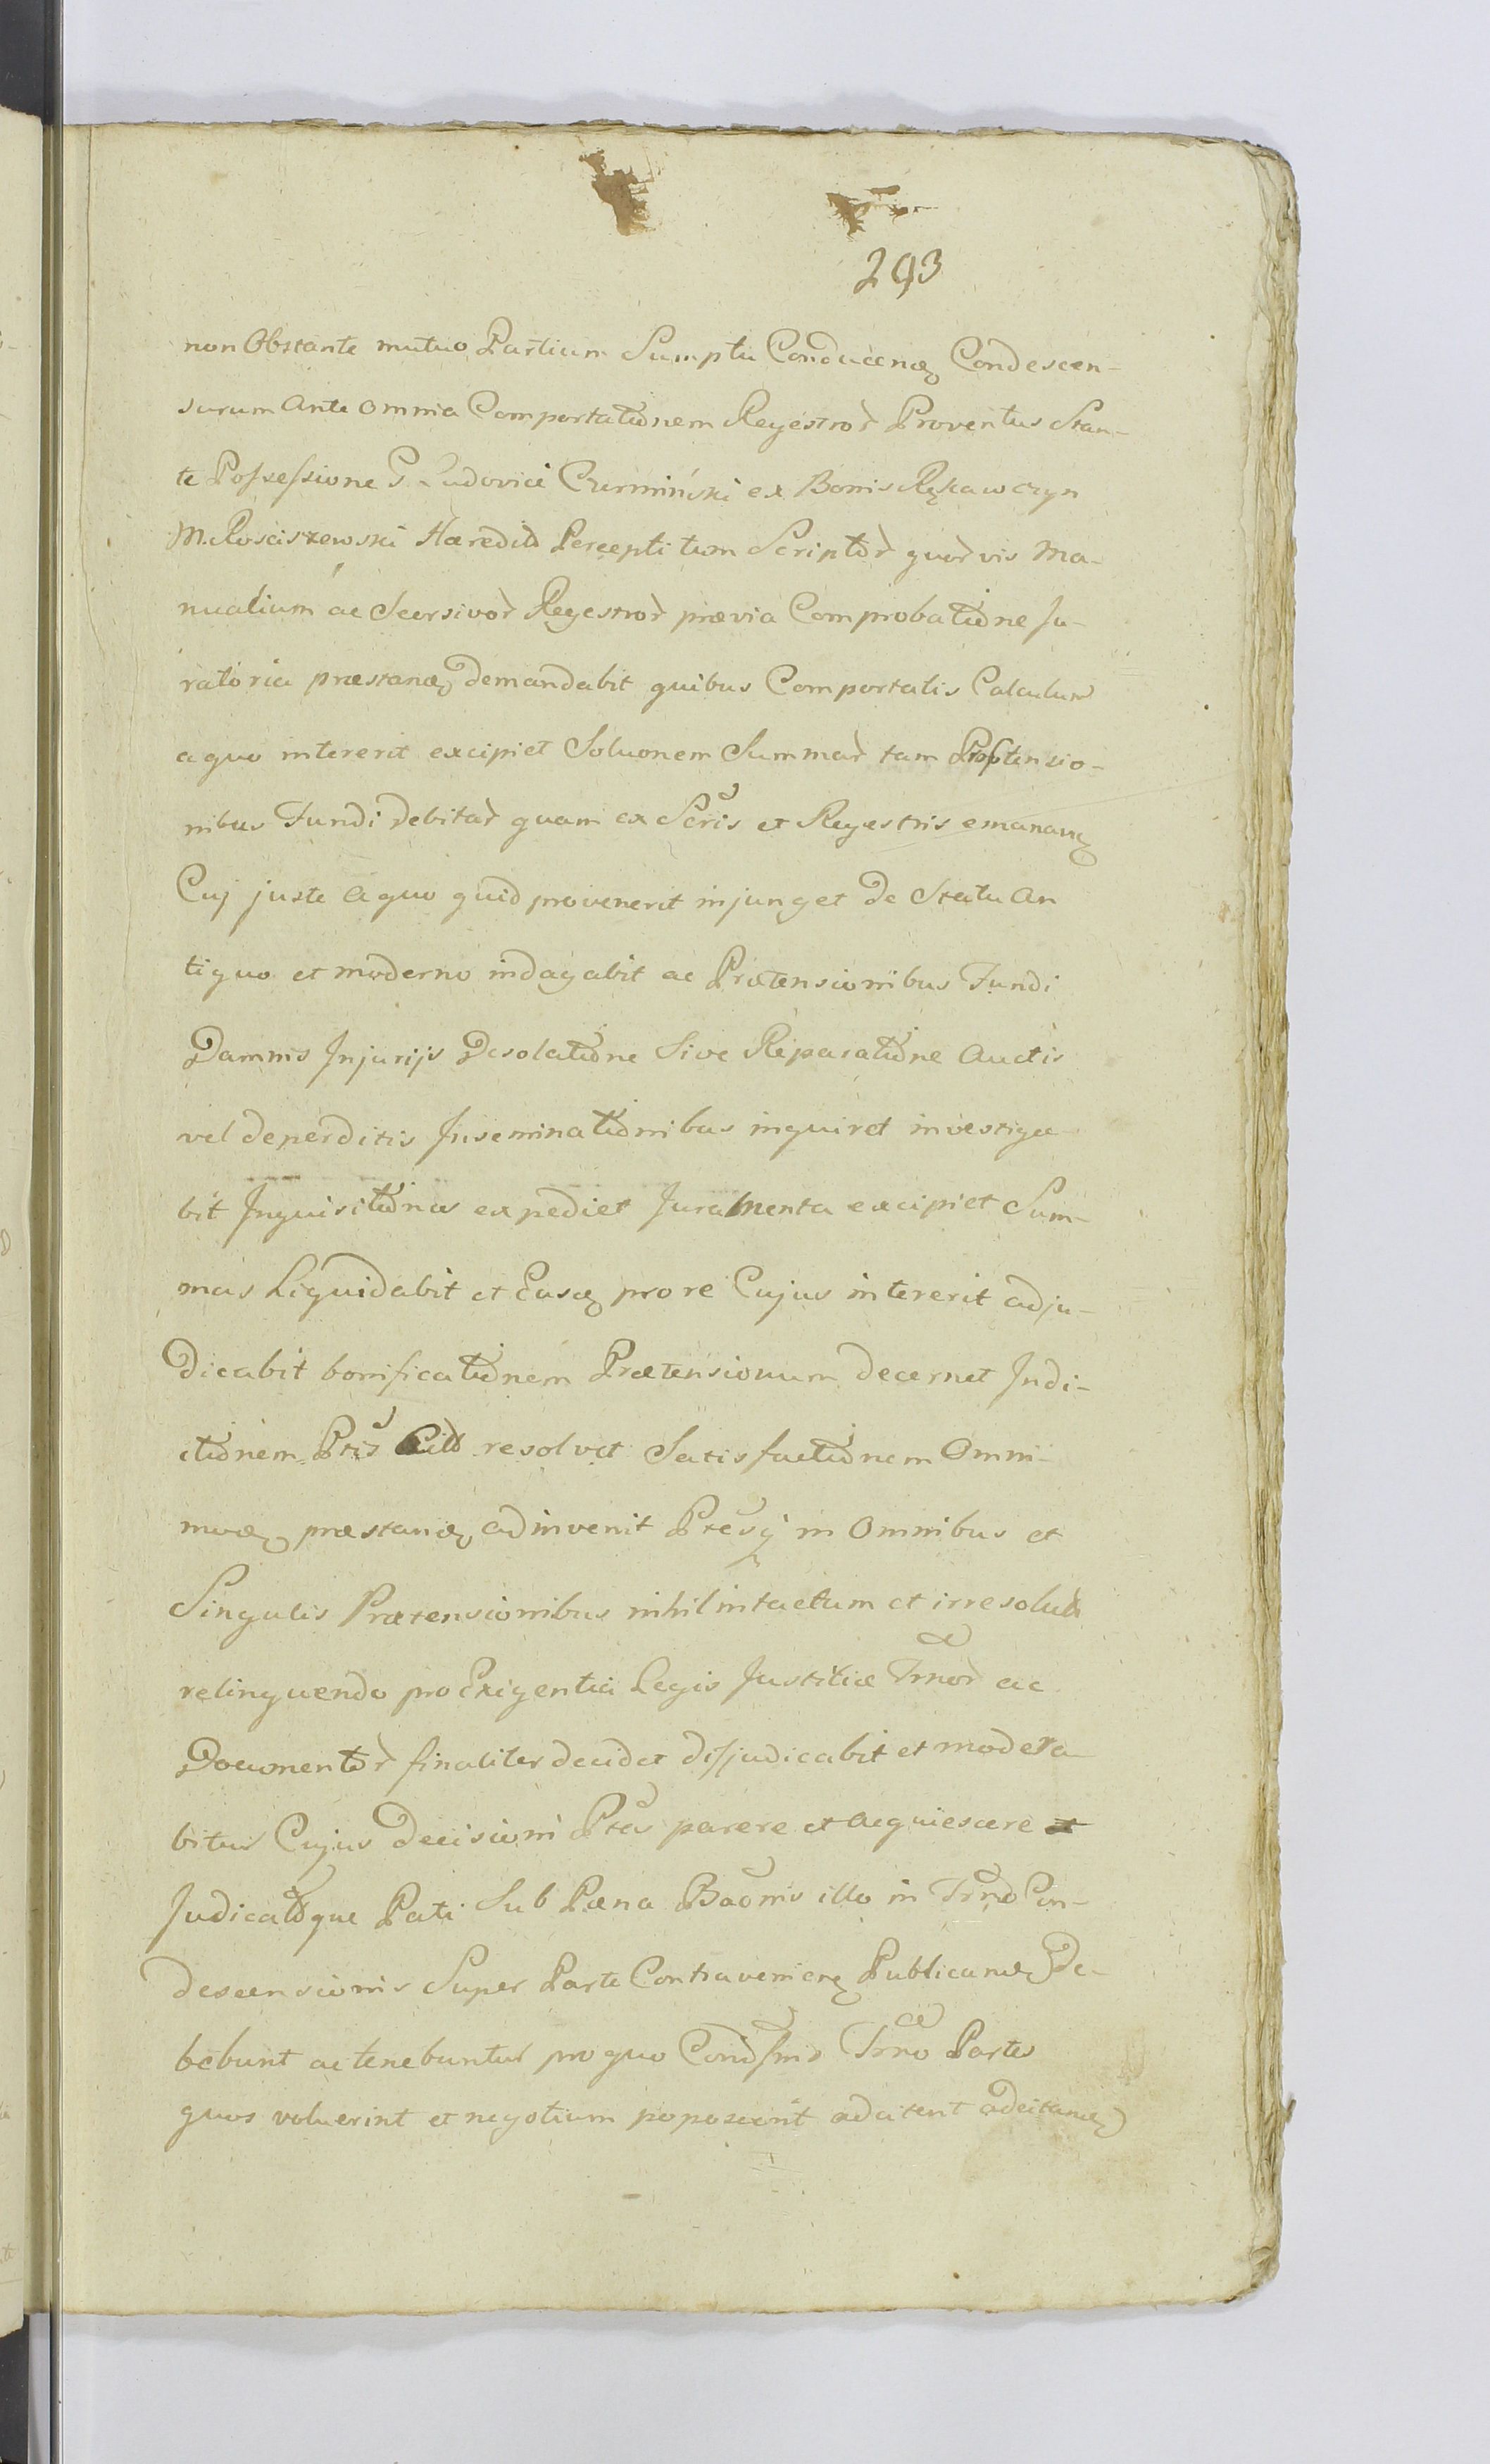 293
non Obstante mutuo Partium Sumptu Conducenɋ Condescen-
surum Ante omnia Comportationem Regestror Proventus Stan-
te Possessione G. Ludovici Czermiński ex Bonis Rękawczyn
M. Rosciszewski Haeredit Percepti tum Scriptor quorvis Ma-
nualium ac Seorsivor Regestror praevia Comprobatione Ju-
ratoria praestanɋ demandabit quibus Comportatis Calculum
a quo intererit excipiet Soluonem Summar tam
nibus Fundi debitar quam ex Scris et Regestris emananɋ
Cuj juste a quo quid provenerit injunget De Statu An
tiquo et moderno indagabit ac Praetensionibus Fundi
Damnis Injurijs Desolatione Sive Reparatione Auctis
vel deperditis Inseminationibus inquiret investiga
bit Inquisitiones expediet Juramenta excipiet Sum-
mas Liquidabit et Easɋ pro re Cujus intererit adju-
dicabit bonificationem Praetensionum decernet Indi-
ctionem Ptis resolvet Satisfactionem Omni-
modɋ praestanɋ adinvenit Ptesɋ in Omnibus et
Singulis Praetensionibus nihil intactum et irresolut
relinquendo pro Exigentia Legis Justitiae Trnor ac
Documentor finaliter decidet disjudicabit et modera
bitur Cujus Decisioni Ptes parere et acquiescere et
Judicatoque Pati Sub Paena Baonis illo in Trno Con-
descensionis Super Parte Contravenienɋ Publicanɋ De-
bebunt ac tenebuntur pro quo Condssnis Trno Partes
quos voluerint et negotium poposcerit adcitent adcitanɋ